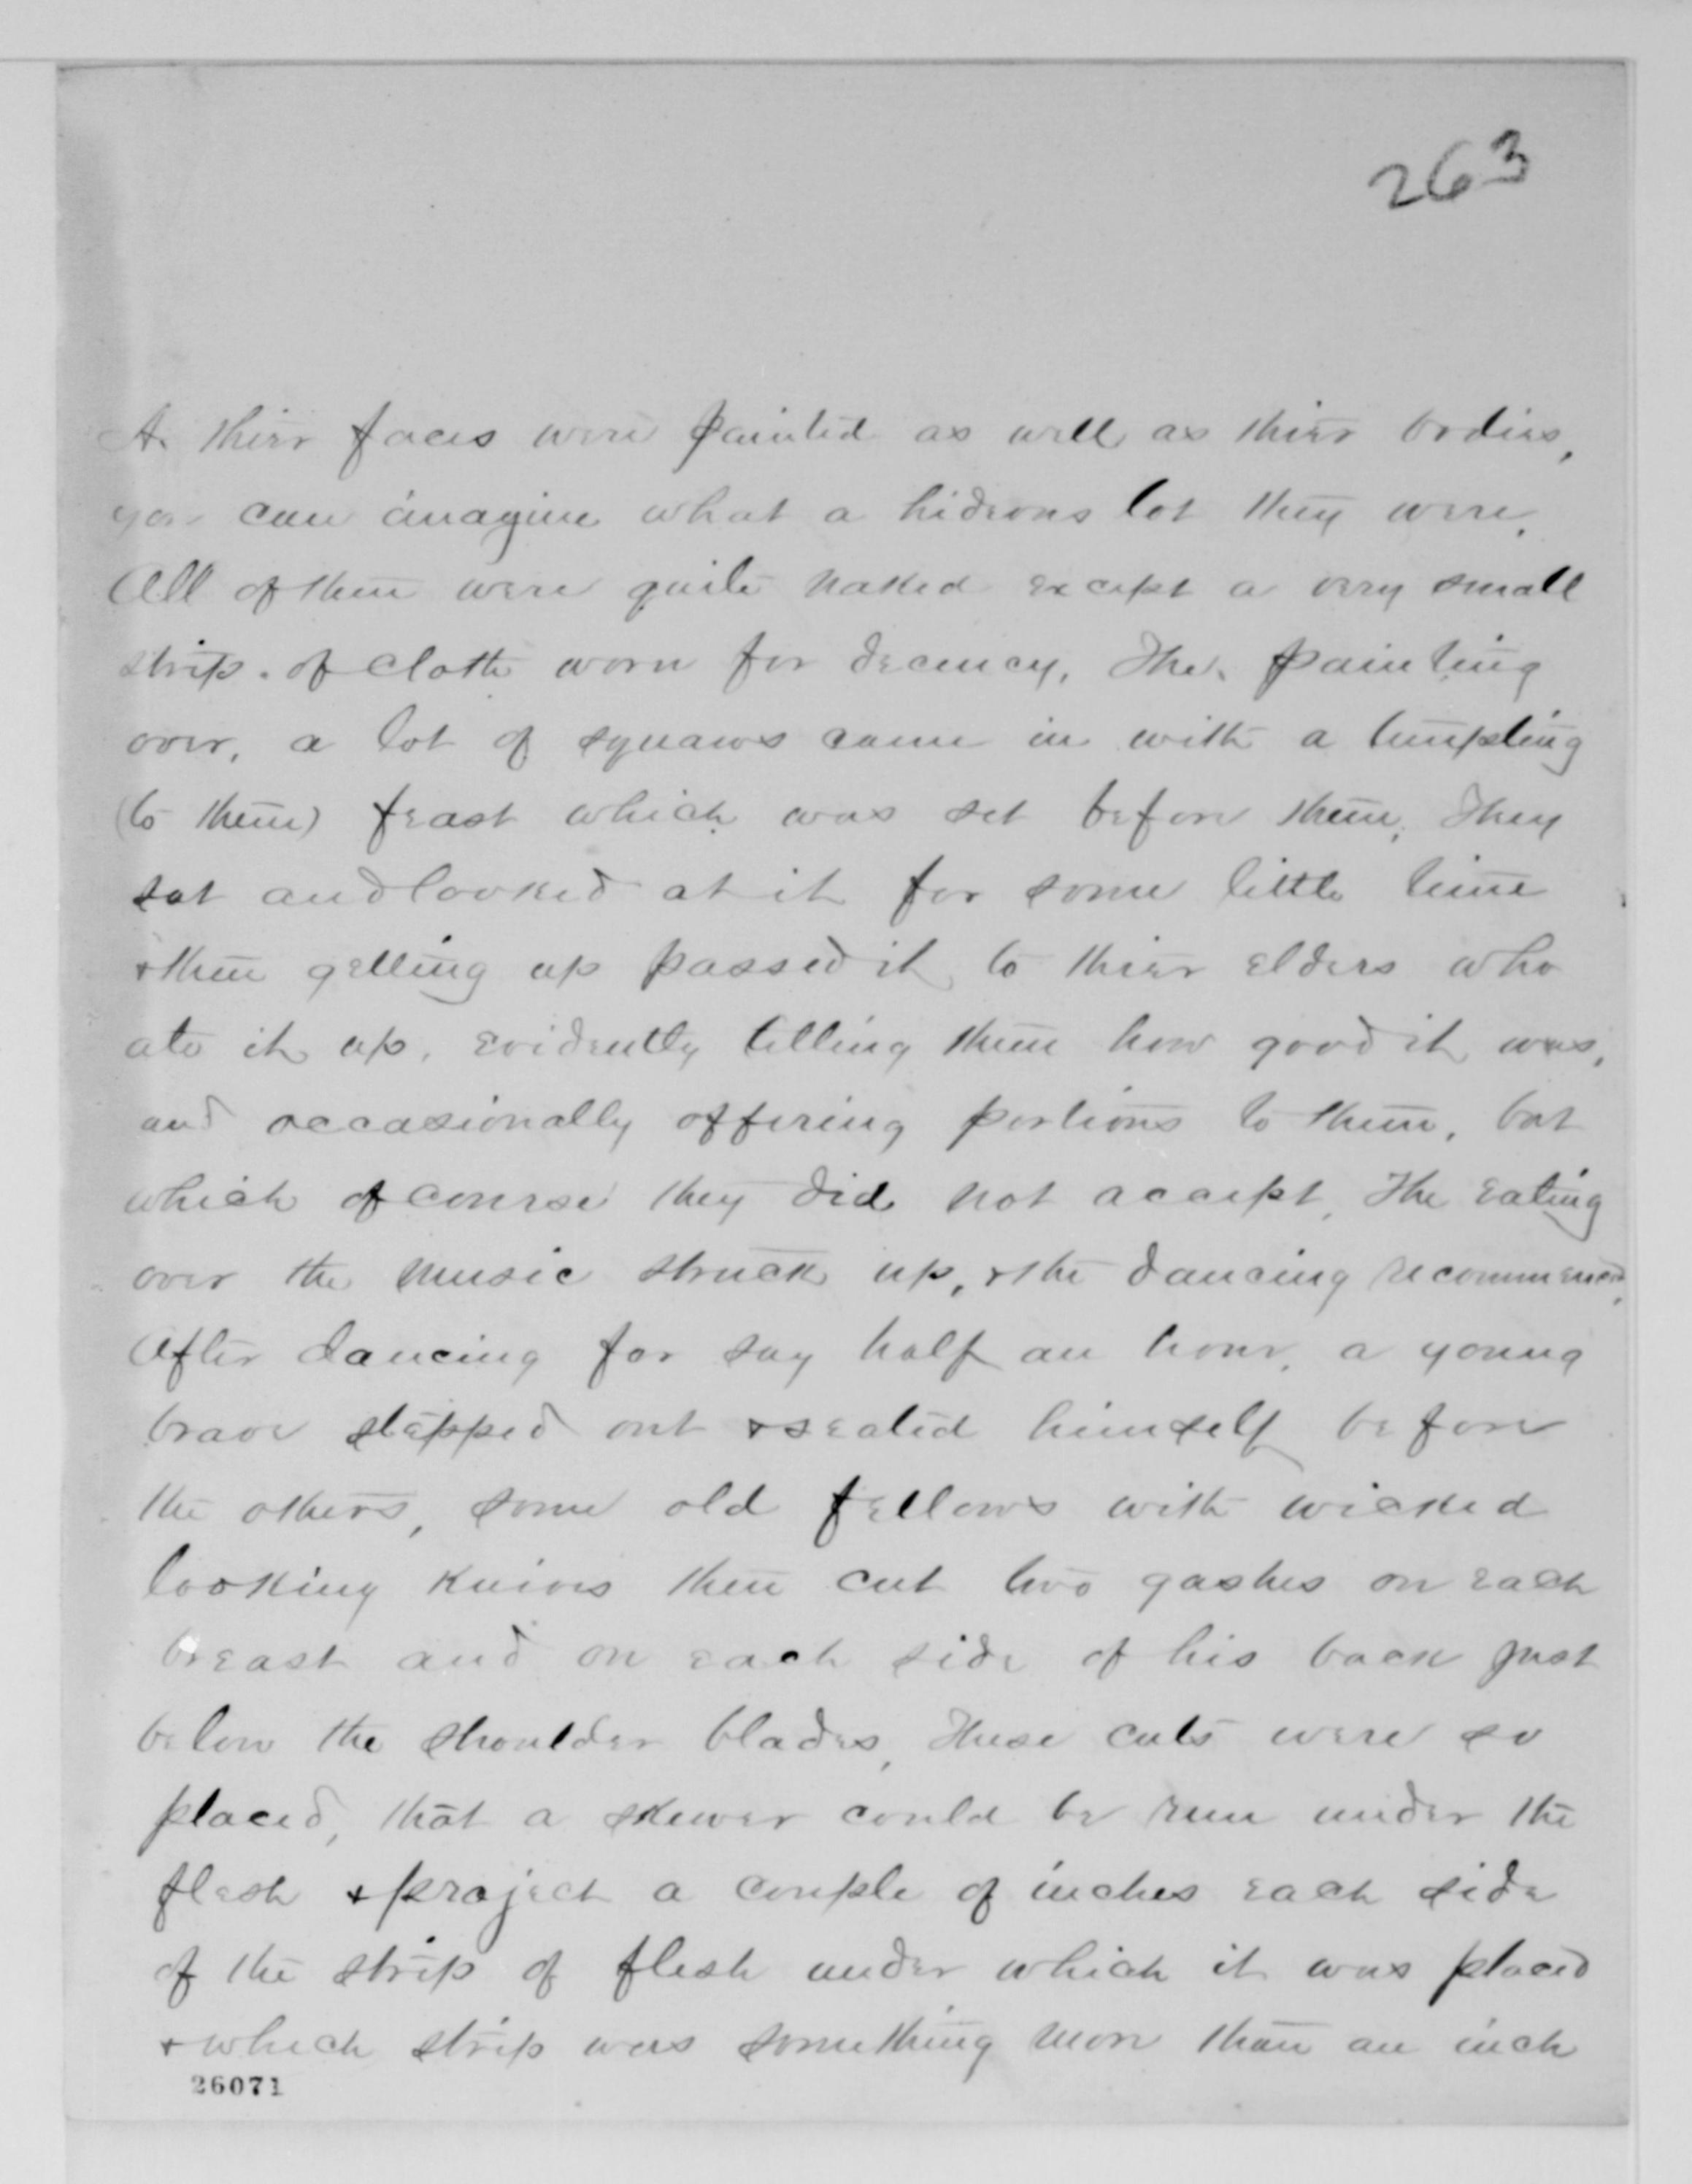 263
As thier faces were painted as well as thier bodies,
you can imagine what a hideous lot they were.
All of them were quite naked except a very small
strip of cloth worn for decency. The painting
over, a lot of squaws came in with a tempting
(to them) feast which was set before them. They
sat and looked at it for some little time
& then getting up passed it to thier elders who
ate it up, evidently telling them how good it was,
and occasionally offering portions to them, but
which of course they did not accept. The eating
over the music struck up, & the dancing recommenced.
After dancing for say half an hour, a young
brave stepped out & seated himself before
the others, some old fellows with wicked
looking knives then cut two gashes on each
breast and on each side of his back just
below the shoulder blades, These cuts were so
placed, that a skewer could be run under the
flesh & project a couple of inches each side
of the strip of flesh under which it was placed
& which strip was something more than an inch
26071